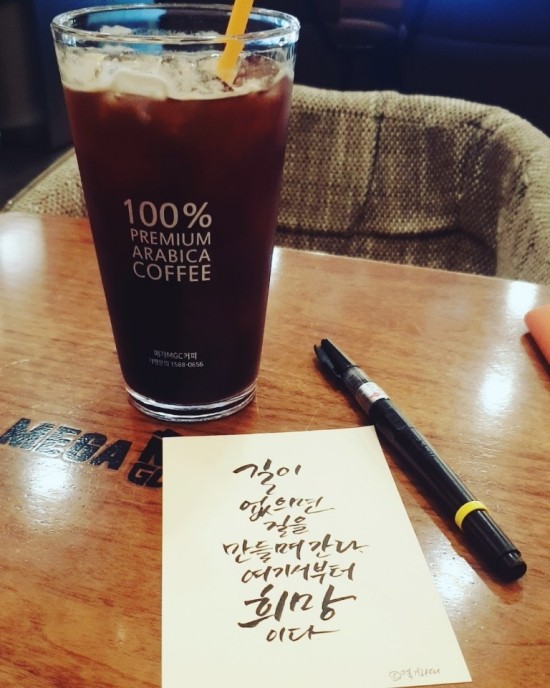 100%
PREMIUM
ARABICA
COFFEE
메가MGC커피
가맹문의 1588-0656
MEGA
길이
없으면
길을
만들며 간다
여기서부터
희망
이다